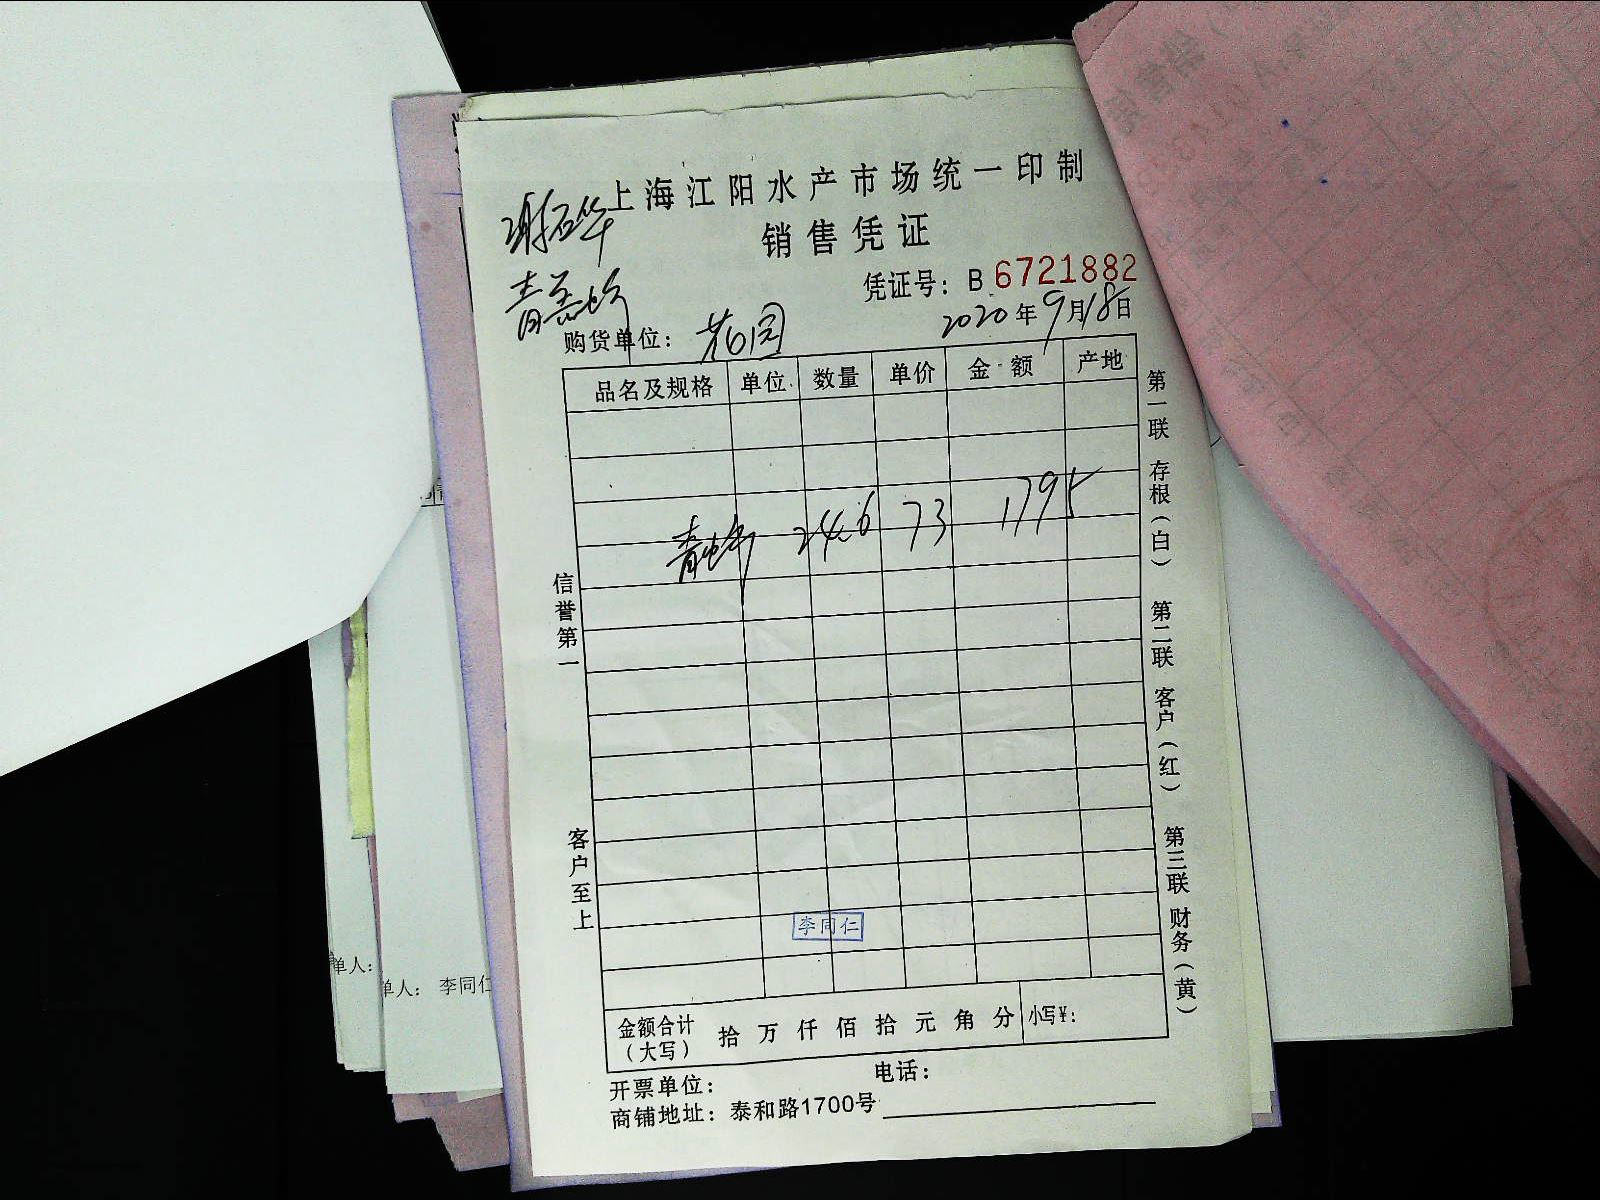 上海江阳水产市场统一印制
销售凭证
凭证号：B 6721882
2020年9月18日
购货单位：花园
品名及规格 单位 数量 单价 金额 产地
24.6 73 1795
信誉第一
客户至上
第一联 存根（白） 第二联 客户（红） 第三联 财务（黄）
李同仁
金额合计（大写） 拾 万 仟 佰 拾 元 角 分 小写¥：
开票单位： 电话：
商铺地址：泰和路1700号
单人：
单人： 李同仁